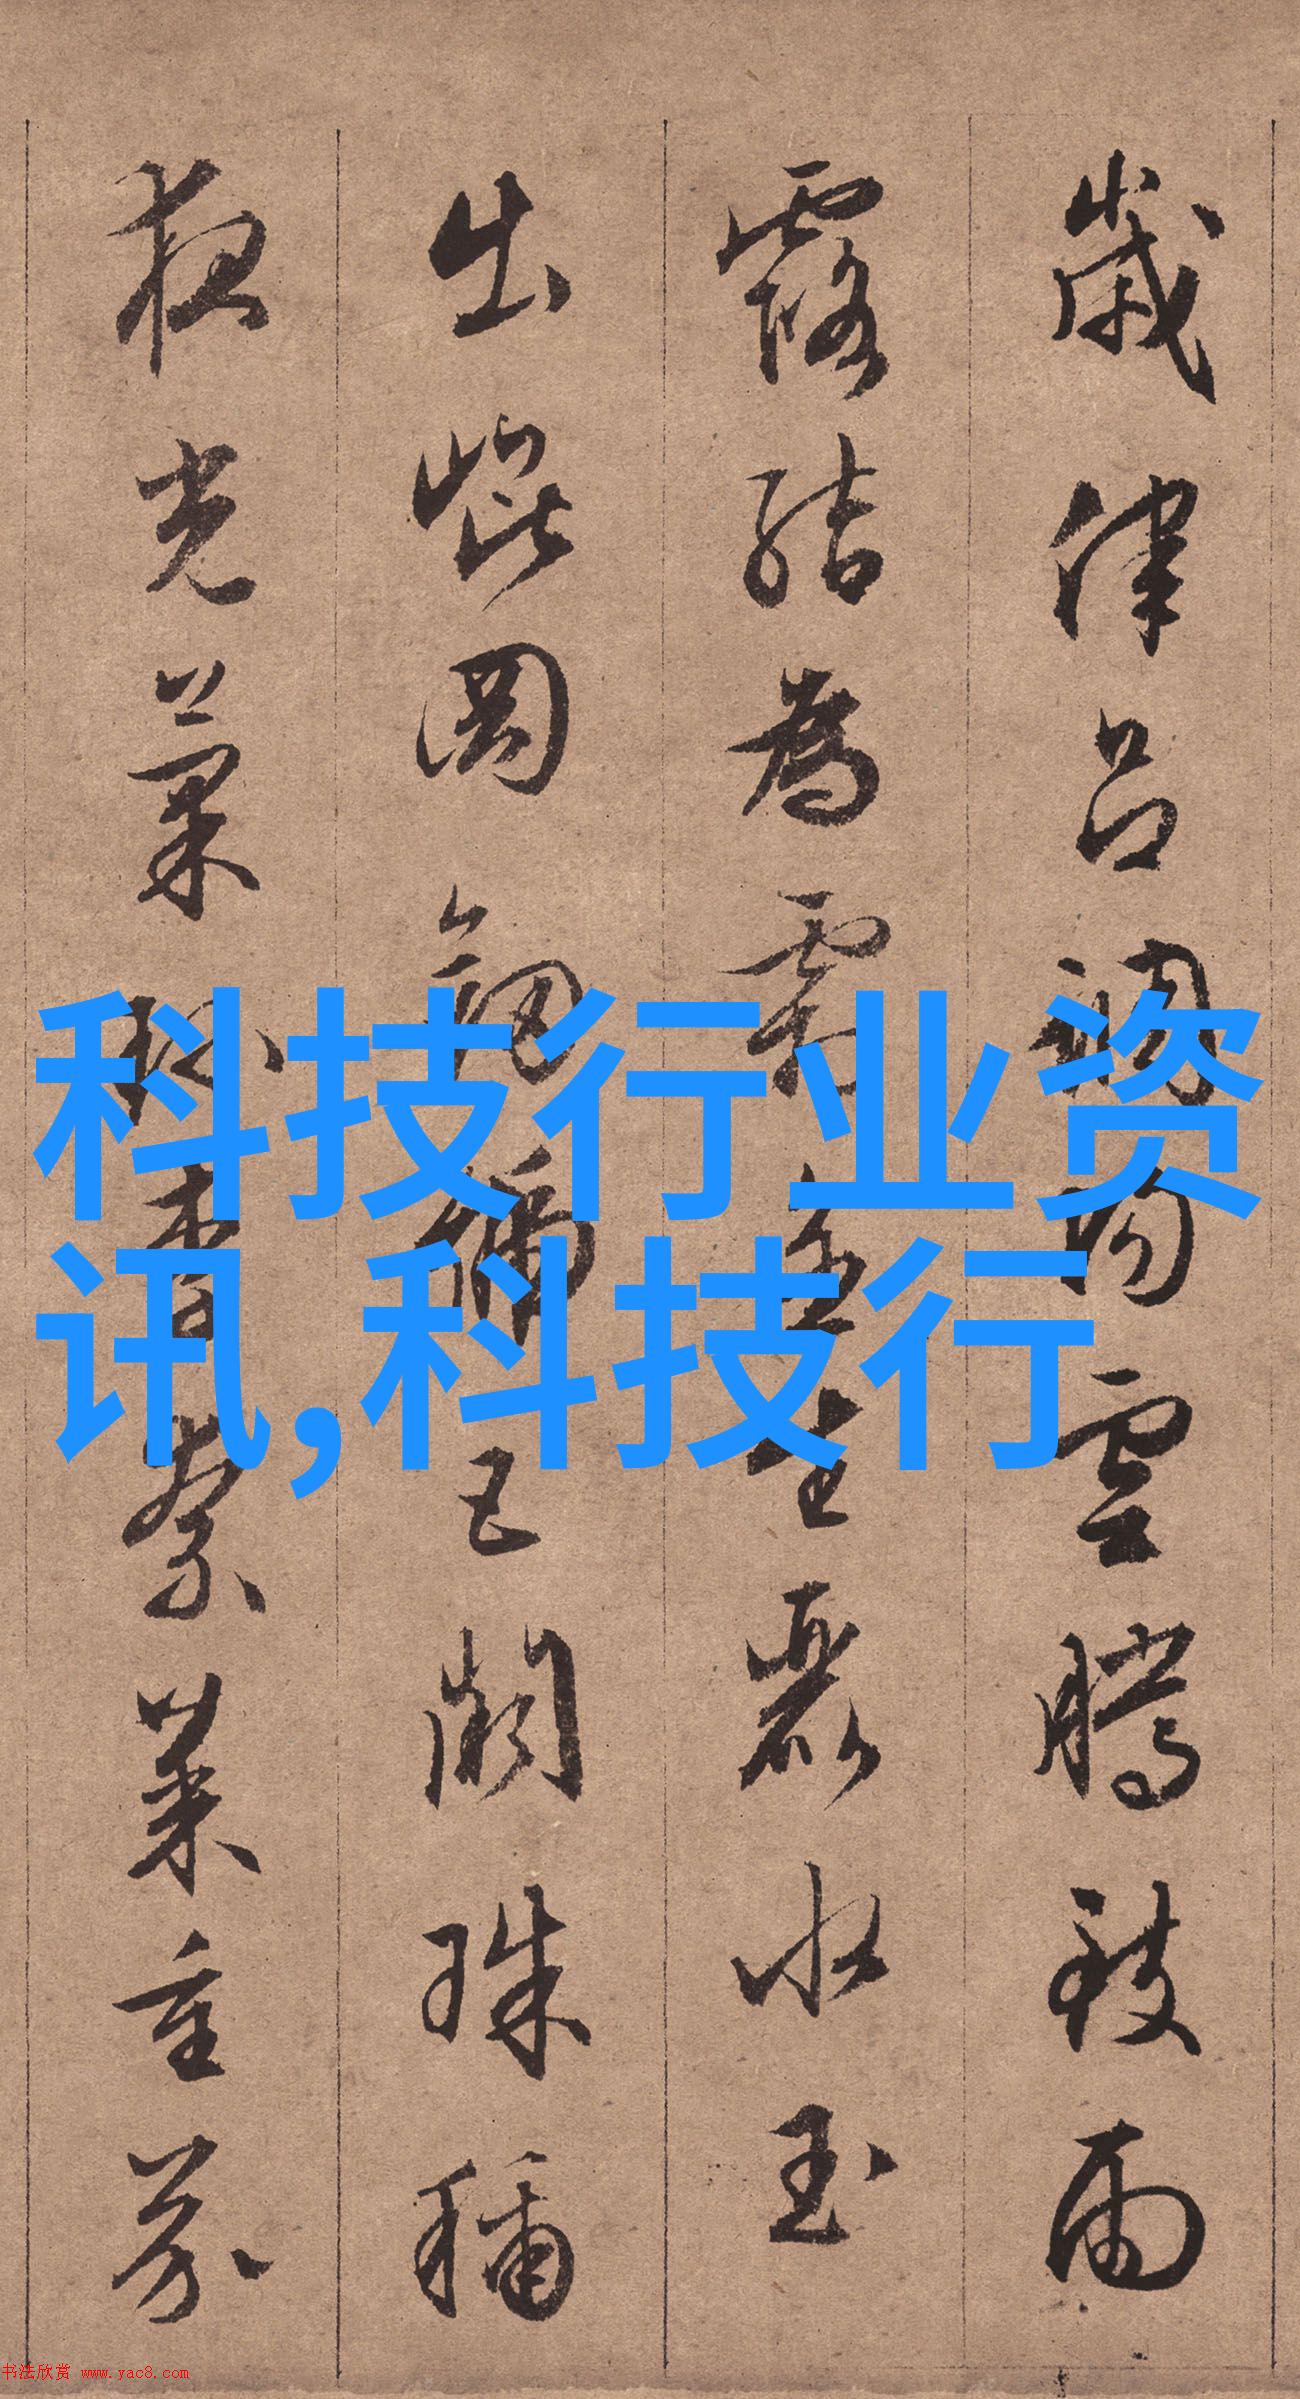 歲律呂調陽雲騰致雨
露結為霜金生麗水玉
出崐岡劍號巨闕珠稱
夜光菓珍李柰菜重芥
科技行业资
讯,科技行
书法欣赏 www.yac8.com